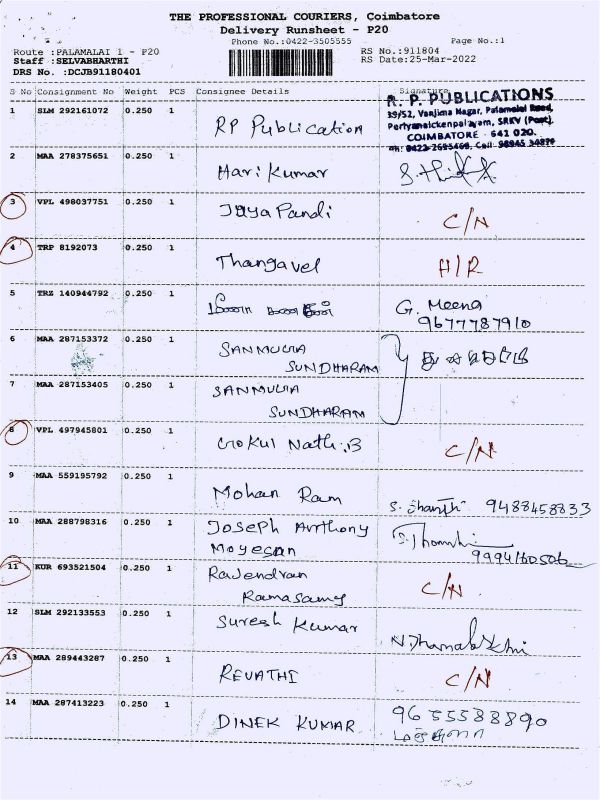 THE PROFESSIONAL COURIERS, Coimbatore
Delivery Runsheet - P20
Phone No.:0422-3505555
Page No.:1
Route :PALAMALAI 1 - P20
RS No.:911804
Staff :SELVABHARTHI
RS Date:25-Mar-2022
DRS No. :DCJB91180401
S No Consignment No Weight PCS Consignee Details Signature
1 SLM 292161072 0.250 1 RP Publication
R. P. PUBLICATIONS
39/52, Vanjima Nagar, Palamalai Road,
Periyanaickenpalayam, SRKV (Post),
COIMBATORE - 641 020.
2 MAA 278375651 0.250 1 Hari Kumar
3 VPL 498037751 0.250 1 Jaya Pandi C/N
4 TRP 8192073 0.250 1 Thangavel H/R
5 TRZ 140944792 0.250 1 G. Meena
9677787910
6 MAA 287153372 0.250 1 SANMUGA
SUNDHARAM
7 MAA 287153405 0.250 1 SANMUGA
SUNDHARAM
8 VPL 497945801 0.250 1 Gokul Nath.B C/N
9 MAA 559195792 0.250 1 Mohan Ram 9488458833
10 MAA 288798316 0.250 1 Joseph Anthony
Moyesan 9994160506
11 KUR 693521504 0.250 1 Rajendran
Ramasamy C/N
12 SLM 292133553 0.250 1 Suresh Kumar N.Dhanalakshmi
13 MAA 289443287 0.250 1 REVATHI C/N
14 MAA 287413223 0.250 1 DINEK KUMAR 9655588890